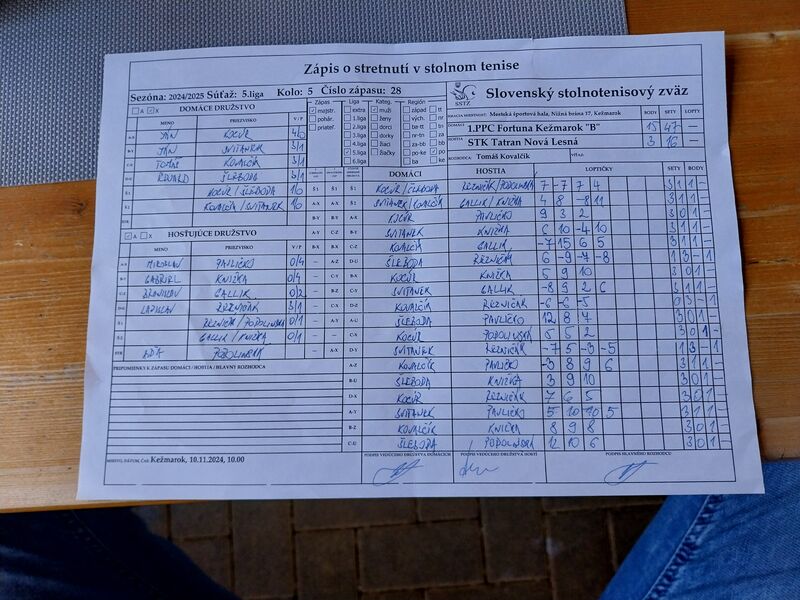 Zápis o stretnutí v stolnom tenise
Sezóna: 2024/2025 Súťaž: 5.liga Kolo: 5 Číslo zápasu: 28
Slovenský stolnotenisový zväz
SSTZ
DOMÁCE DRUŽSTVO
MENO PRIEZVISKO V / P
JÁN KOCÚR 4/0
JÁN SVITANEK 3/1
TOMÁŠ KOVALČÍK 3/1
ŠLEBODA 3/1
KOCÚR / ŠLEBODA 1/0
KOVALČÍK / SVITANEK 1/0
HOSŤUJÚCE DRUŽSTVO
MENO PRIEZVISKO V / P
MIROSLAV PAVLIČKO 0/4
GABRIEL KNIŽKA 0/4
BRANISLAV GALLIK 0/2
LADISLAV REZNIČÁK 3/1
REZNIČÁK / PODOLINSKÁ 0/1
GALLIK / KNIŽKA 0/1
PODOLINSKÁ
PRIPOMIENKY K ZÁPASU DOMÁCI / HOSTIA / HLAVNÝ ROZHODCA
Kežmarok, 10.11.2024, 10.00
Zápas Liga Kateg. Región
majstr. extra muži
pohár. 1.liga ženy
priateľ. 2.liga dorci
3.liga dorky
4.liga žiaci
5.liga žiačky
6.liga
Mestská športová hala, Nižná brána 17, Kežmarok
BODY SETY LOPTY
DOMÁCI 1.PPC Fortuna Kežmarok "B" 15 47 –
HOSTIA STK Tatran Nová Lesná 3 16 –
ROZHODCA: Tomáš Kovalčík
DOMÁCI HOSTIA LOPTIČKY SETY
KOCÚR / ŠLEBODA REZNIČÁK / PODOLINSKÁ 7 -7 7 4 3 1 1 –
SVITANEK / KOVALČÍK GALLIK / KNIŽKA 4 8 -8 11 3 1 1 –
KOCÚR PAVLIČKO 9 3 2 3 0 1 –
SVITANEK KNIŽKA 6 10 -4 10 3 1 1 –
KOVALČÍK GALLIK -7 15 6 5 3 1 1 –
ŠLEBODA REZNIČÁK 6 -9 -7 -8 1 3 – 1
KOCÚR KNIŽKA 5 9 10 3 0 1 –
SVITANEK GALLIK -8 9 2 6 3 1 1 –
KOVALČÍK REZNIČÁK -6 -6 -5 0 3 – 1
ŠLEBODA PAVLIČKO 12 8 7 3 0 1 –
KOCÚR PODOLINSKÁ 5 5 2 3 0 1 –
SVITANEK REZNIČÁK -7 5 -3 -5 1 3 – 1
KOVALČÍK PAVLIČKO -3 8 9 6 3 1 1 –
ŠLEBODA KNIŽKA 3 9 10 3 0 1 –
KOCÚR REZNIČÁK 7 6 5 3 0 1 –
SVITANEK PAVLIČKO 5 10 5 3 1 1 –
KOVALČÍK KNIŽKA 8 9 8 3 0 1 –
ŠLEBODA PODOLINSKÁ 12 10 6 3 0 1 –
PODPIS VEDÚCEHO DRUŽSTVA DOMÁCICH PODPIS VEDÚCEHO DRUŽSTVA HOSTÍ PODPIS HLAVNÉHO ROZHODCU